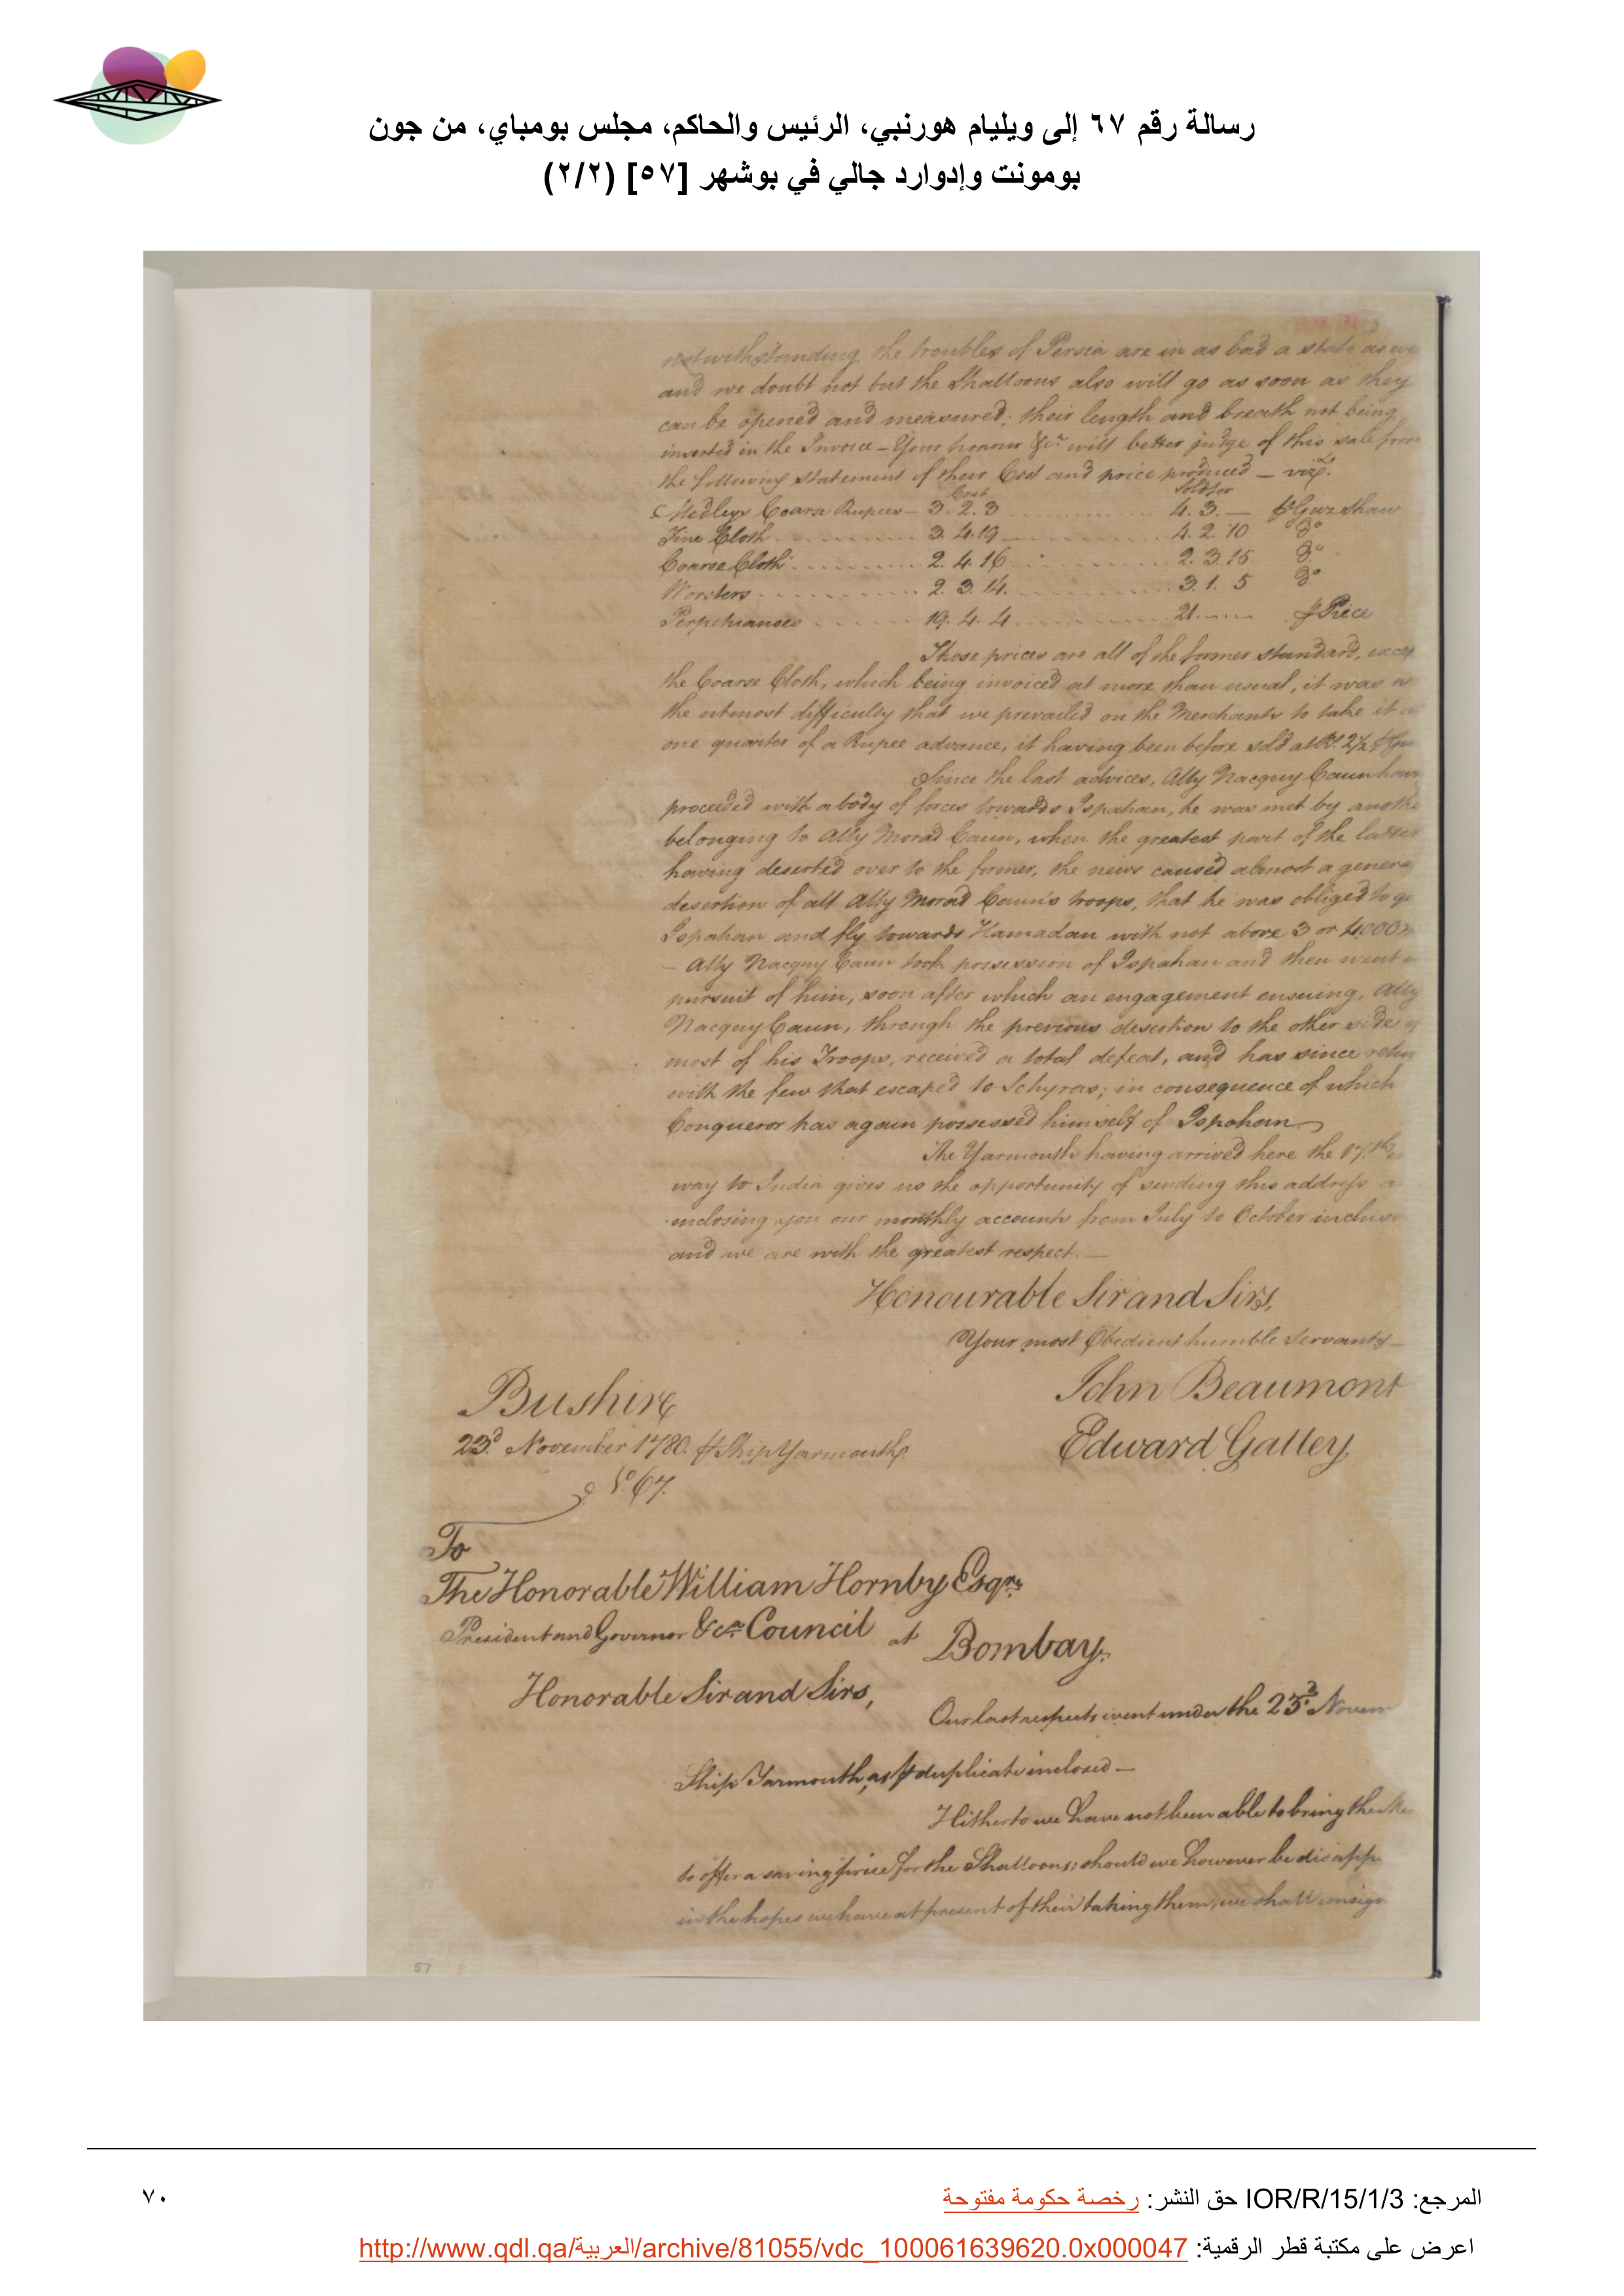 رسالة رقم ٦٧ إلى ويليام هورنبي، الرئيس والحاكم، مجلس بومباي، من جون
بومونت وإدوارد جالي في بوشهر [٥٧] (٢/٢)
notwithstanding the troubles of Persia are in as bad a state as
and we doubt not but the Shalloons also will go as soon as they
can be opened and measured; their length and breath not being
inserted in the Invoice – Your honour &ca. will better judge of this sale from
the following statement of their Cost and price produced – vizt.
Cost Sold for
Medleys Coarse Rupees – 3. 2. 3 4. 3. — ⅌ Guz Shaw
Fine Cloth 3. 4. 19 4. 2. 10 Do.
Coarse Cloth 2. 4. 16 2. 3. 15 Do.
Worsters 2. 3. 14. 3. 1. 5 Do.
Perpetuanoes 19. 4. 4 21 ⅌ Piece
Those prices are all of the former standard,
the Coarse Cloth, which being invoiced at more than usual, it was
the utmost difficulty that we prevailed on the Merchants to take it
one quarter of a Rupee advance, it having been before sold at Rs. 2½
Since the last advices, Ally Nacquy Caun
proceeded with a body of forces towards Ispahan, he was met by
belonging to Ally Morad Caun, when the greatest part of the latter
having deserted over to the former, the news caused almost a
desertion of all Ally Morad Caun's troops, that he was obliged to
Ispahan and fly towards Hamadan with not above 3 or 4000
– Ally Nacquy Caun took possession of Ispahan and then went
pursuit of him, soon after which an engagement ensuing, Ally
Nacquy Caun, through the previous desertion to the other side
most of his Troops, received a total defeat, and has since
with the few that escaped to Schyras; in consequence of which
Conqueror has again possessed himself of Ispahan
The Yarmouth having arrived here the 17th.
way to India gives us the opportunity of sending this address
enclosing you our monthly accounts from July to October
and we are with the greatest respect. —
Honourable Sir and Sirs,
Your most Obedient humble Servants –
Bushire John Beaumont
23d. November 1780. ⅌ Ship Yarmouth. Edward Galley
No. 67.
To
The Honorable William Hornby Esqre.
President and Governor &ca. Council at Bombay.
Honorable Sir and Sirs,
Our last respects went under the 23d.
Ship Yarmouth, as ⅌ duplicate inclosed –
Hitherto we have not been able to bring
to offer a saving price for the Shalloons; should we however be
in the hopes we have at present of their taking them, we shall
57
المرجع: IOR/R/15/1/3 حق النشر: رخصة حكومة مفتوحة
٧٠
اعرض على مكتبة قطر الرقمية: http://www.qdl.qa/العربية/archive/81055/vdc_100061639620.0x000047